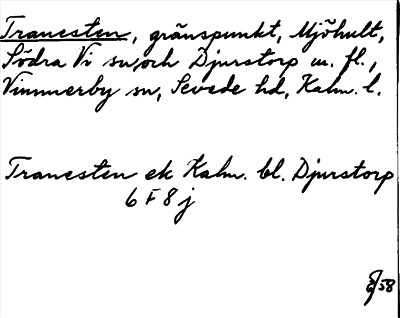 Tranesten, gränspunkt, Mjöhult,
Södra Vi sn, och Djurstorp m. fl.,
Vimmerby sn, Sevede hd, Kalm. l.
Tranesten ek Kalm. bl. Djurstorp
6 F 8 j
58